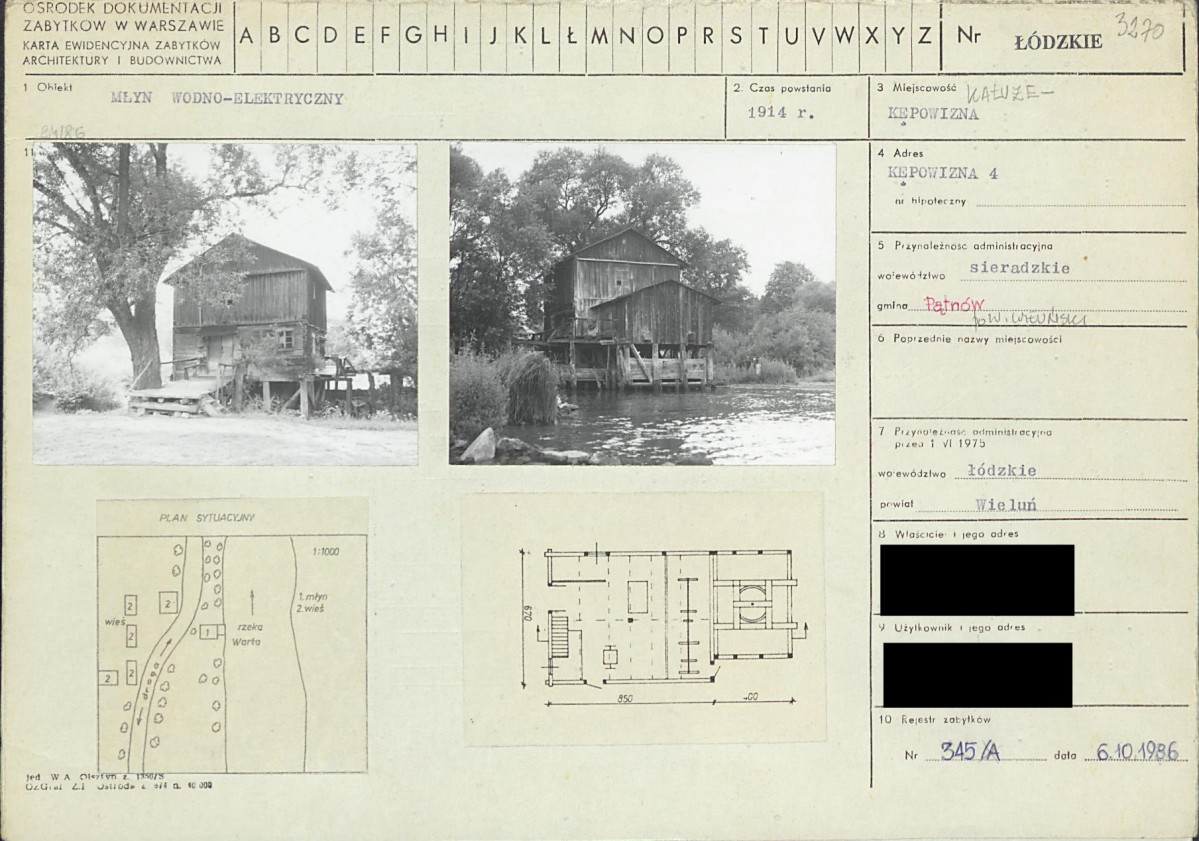 OŚRODEK DOKUMENTACJI
ZABYTKÓW W WARSZAWIE
KARTA EWIDENCYJNA ZABYTKÓW
ARCHITEKTURY I BUDOWNICTWA
A B C D E F G H I J K L Ł M N O P R S T U V W X Y Z
Nr ŁÓDZKIE 3270
1 Obiekt
MŁYN WODNO-ELEKTRYCZNY
2. Czas powstania
1914 r.
3 Miejscowość KAŁUŻE-
KĘPOWIZNA
4 Adres
KĘPOWIZNA 4
nr hipoteczny
5 Przynależność administracyjna
województwo sieradzkie
gmina Pątnów
pow. wieluński
6 Poprzednie nazwy miejscowości
7 Przynależność administracyjna
przed 1 VI 1975
województwo łódzkie
powiat Wieluń
8 Właściciel i jego adres
9 Użytkownik i jego adres
10 Rejestr zabytków
Nr 345/A data 6.10.1986
11.
PLAN SYTUACYJNY
1:1000
1. młyn
2. wieś
wieś
2
2
2
2
2
1
droga
rzeka
Warta
670
850
400